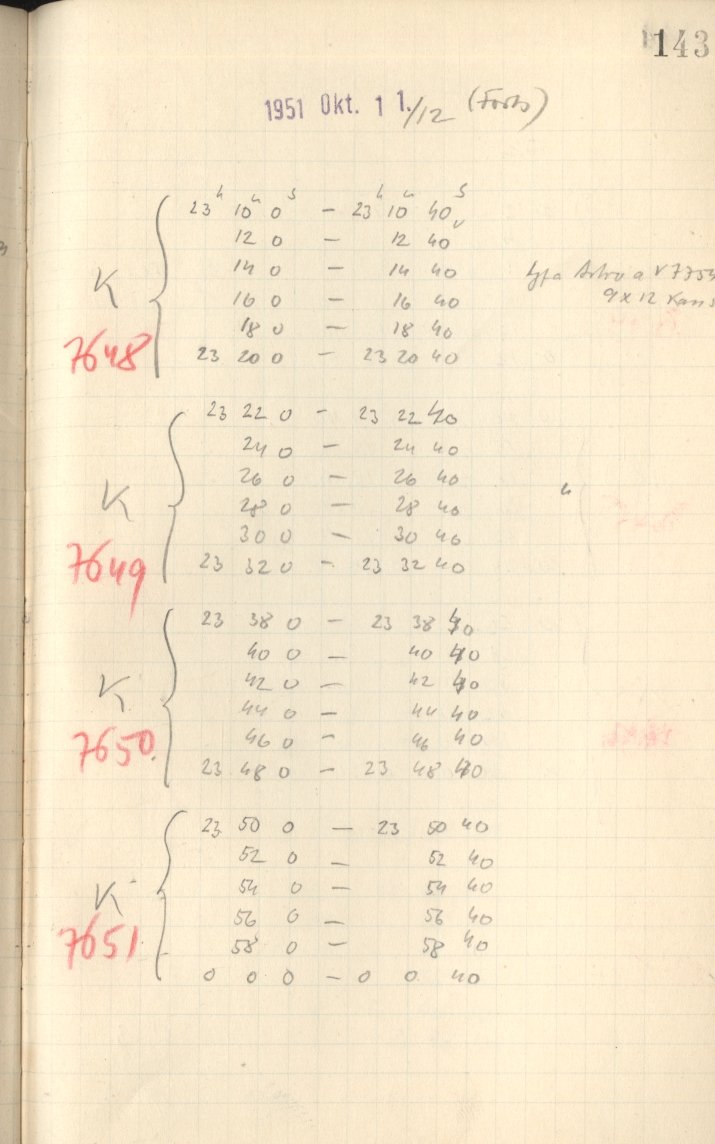 143
1951 Okt. 1 1./12 (Forts)
23h 10m 0s - 23h 10m 40s
12 0 - 12 40
14 0 - 14 40
K 16 0 - 16 40
9 x 12
18 0 - 18 40
7648 23 20 0 - 23 20 40
23 22 0 - 23 22 40
24 0 - 24 40
26 0 - 26 40
K 28 0 - 28 40 "
30 0 - 30 40
7649 23 32 0 - 23 32 40
23 38 0 - 23 38 40
40 0 - 40 40
K 42 0 - 42 40
44 0 - 44 40
7650. 46 0 - 46 40
23 48 0 - 23 48 40
23 50 0 - 23 50 40
52 0 - 52 40
K 54 0 - 54 40
56 0 - 56 40
7651 58 0 - 58 40
0 0 0 - 0 0 40